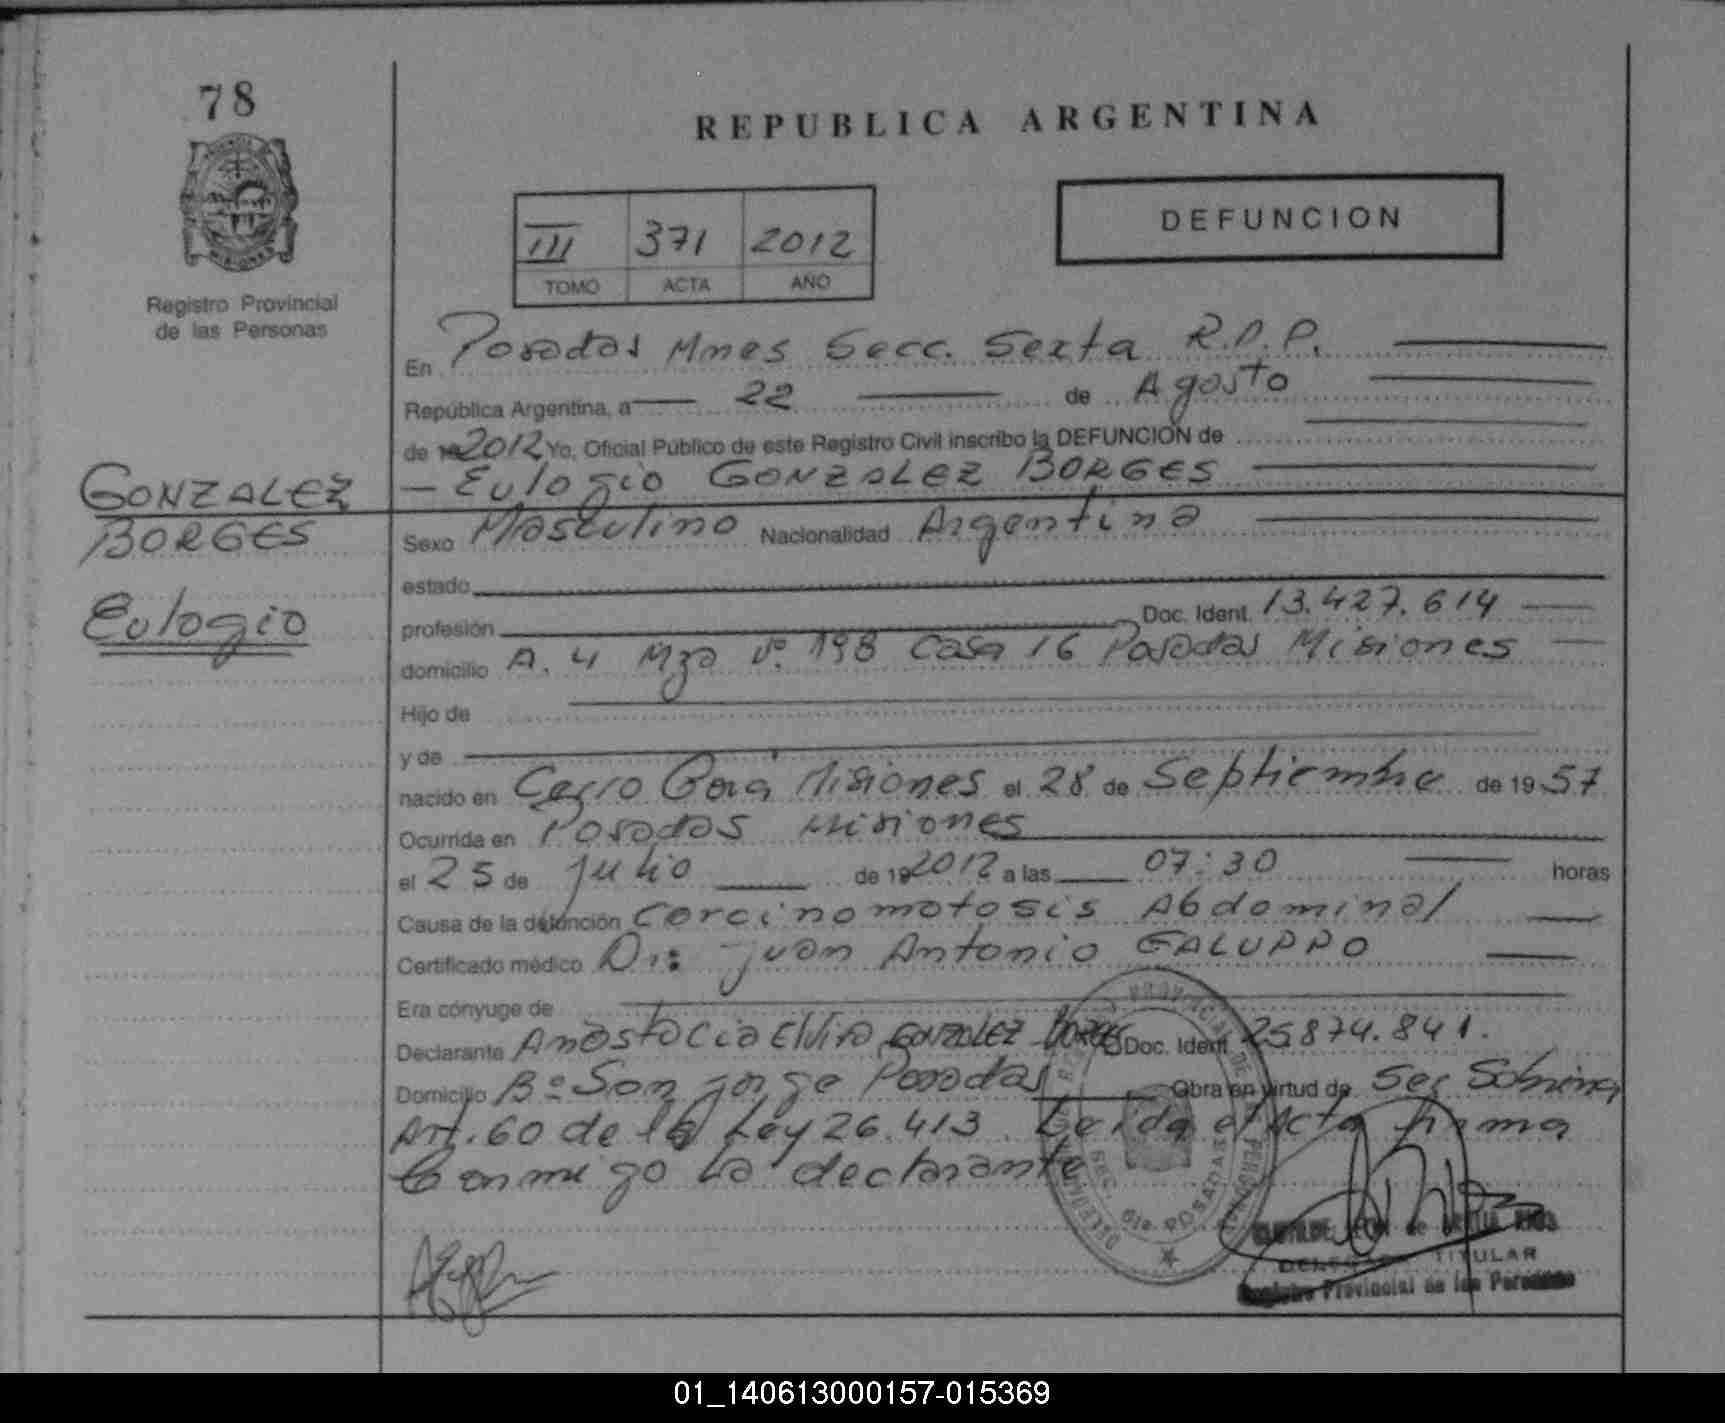 78
MISIONES
Registro Provincial
de las Personas
REPUBLICA ARGENTINA
DEFUNCION
III 371 2012
TOMO ACTA AÑO
En Posadas Mnes Secc. Sexta R.P.P.
República Argentina, a 22 de Agosto
de 2012 Yo, Oficial Público de este Registro Civil inscribo la DEFUNCION de
GONZALEZ
BORGES
Eulogio
Eulogio GONZALEZ BORGES
Sexo Masculino Nacionalidad Argentina
estado
profesión Doc. Ident. 13.427.614
domicilio A. 4 Mza Nº. 198 Casa 16 Posadas Misiones
Hijo de
y de
nacido en Cerro Corá Misiones el 28 de Septiembre de 1957
Ocurrida en Posadas Misiones
el 25 de Julio de 2012 a las 07:30 horas
Causa de la defunción Carcinomatosis Abdominal
Certificado médico Dr: Juan Antonio GALUPPO
Era cónyuge de
Declarante Anastacia Elvira GONZALEZ BORGES Doc. Ident. 25.874.841.
Domicilio Bº San Jorge Posadas Obra en virtud de Ser Sobrina
Art. 60 de la Ley 26.413 Leida el Acta firma
Conmigo La declarante
SEC. 6ta POSADAS
DELEGADO TITULAR
Registro Provincial de las Personas
01_140613000157-015369